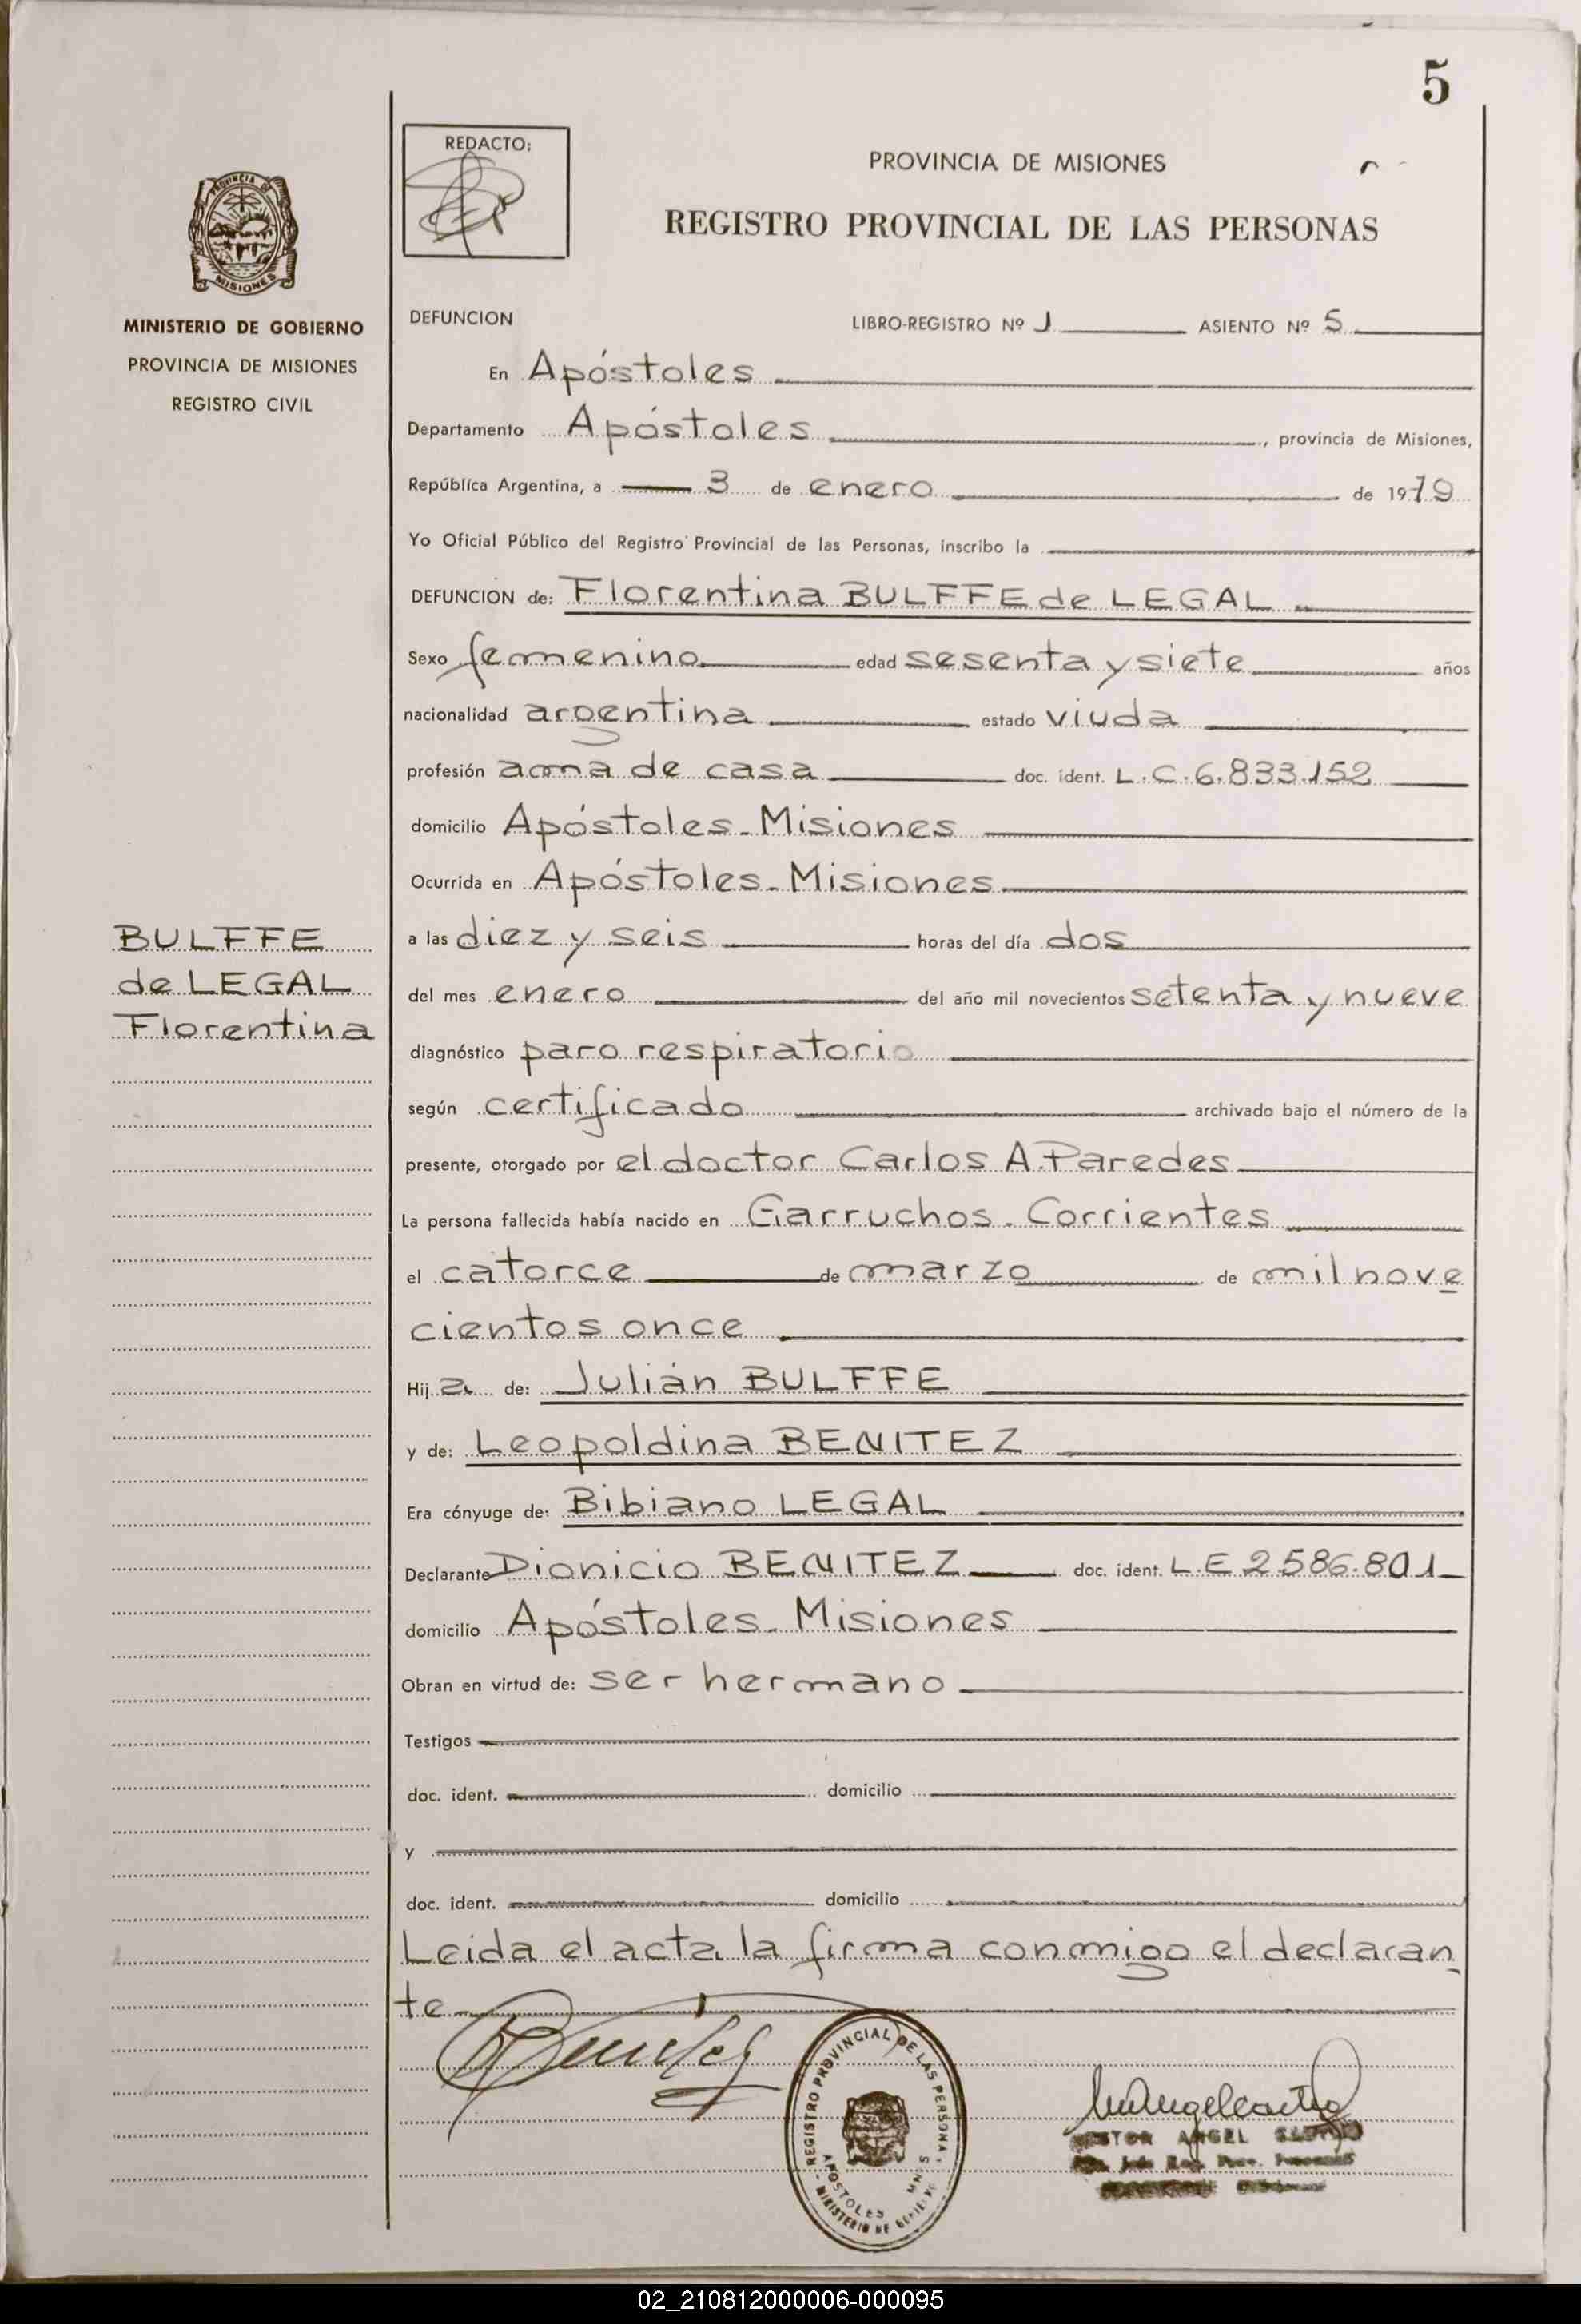 5
REDACTO:
PROVINCIA DE MISIONES
REGISTRO PROVINCIAL DE LAS PERSONAS
PROVINCIA DE
MISIONES
MINISTERIO DE GOBIERNO
PROVINCIA DE MISIONES
REGISTRO CIVIL
DEFUNCION LIBRO-REGISTRO Nº 1 ASIENTO Nº 5
En Apóstoles
Departamento Apóstoles, provincia de Misiones,
República Argentina, a 3 de enero de 1979
Yo Oficial Público del Registro Provincial de las Personas, inscribo la
DEFUNCION de: Florentina BULFFE de LEGAL
Sexo femenino edad sesenta y siete años
nacionalidad argentina estado viuda
profesión ama de casa doc. ident. L.C. 6.833.152
domicilio Apóstoles - Misiones
Ocurrida en Apóstoles - Misiones
a las diez y seis horas del día dos
del mes enero del año mil novecientos setenta y nueve
diagnóstico paro respiratorio
según certificado archivado bajo el número de la
presente, otorgado por el doctor Carlos A. Paredes
La persona fallecida había nacido en Garruchos - Corrientes
el catorce de marzo de mil nove
cientos once
Hija de: Julián BULFFE
y de: Leopoldina BENITEZ
Era cónyuge de: Bibiano LEGAL
Declarante Dionicio BENITEZ doc. ident. L.E 2.586.801
domicilio Apóstoles - Misiones
Obran en virtud de: ser hermano
Testigos
doc. ident. domicilio
y
doc. ident. domicilio
Leida el acta la firma conmigo el declaran
te
BULFFE
de LEGAL
Florentina
Benitez
REGISTRO PROVINCIAL DE LAS PERSONAS
APOSTOLES MNES
MINISTERIO DE GOBIERNO
NESTOR ANGEL
02_210812000006-000095